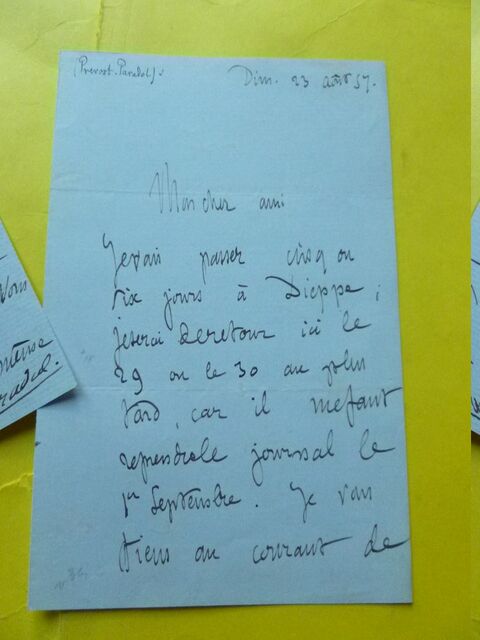 (Prevost-Paradol).
Dim. 23 août 57.
Mon cher ami
Je vais passer cinq ou
six jours à Dieppe ;
je serai de retour ici le
29 ou le 30 au plus
tard, car il me faut
reprendre le journal le
1er Septembre. Je vous
tiens au courant de
vous
radol.